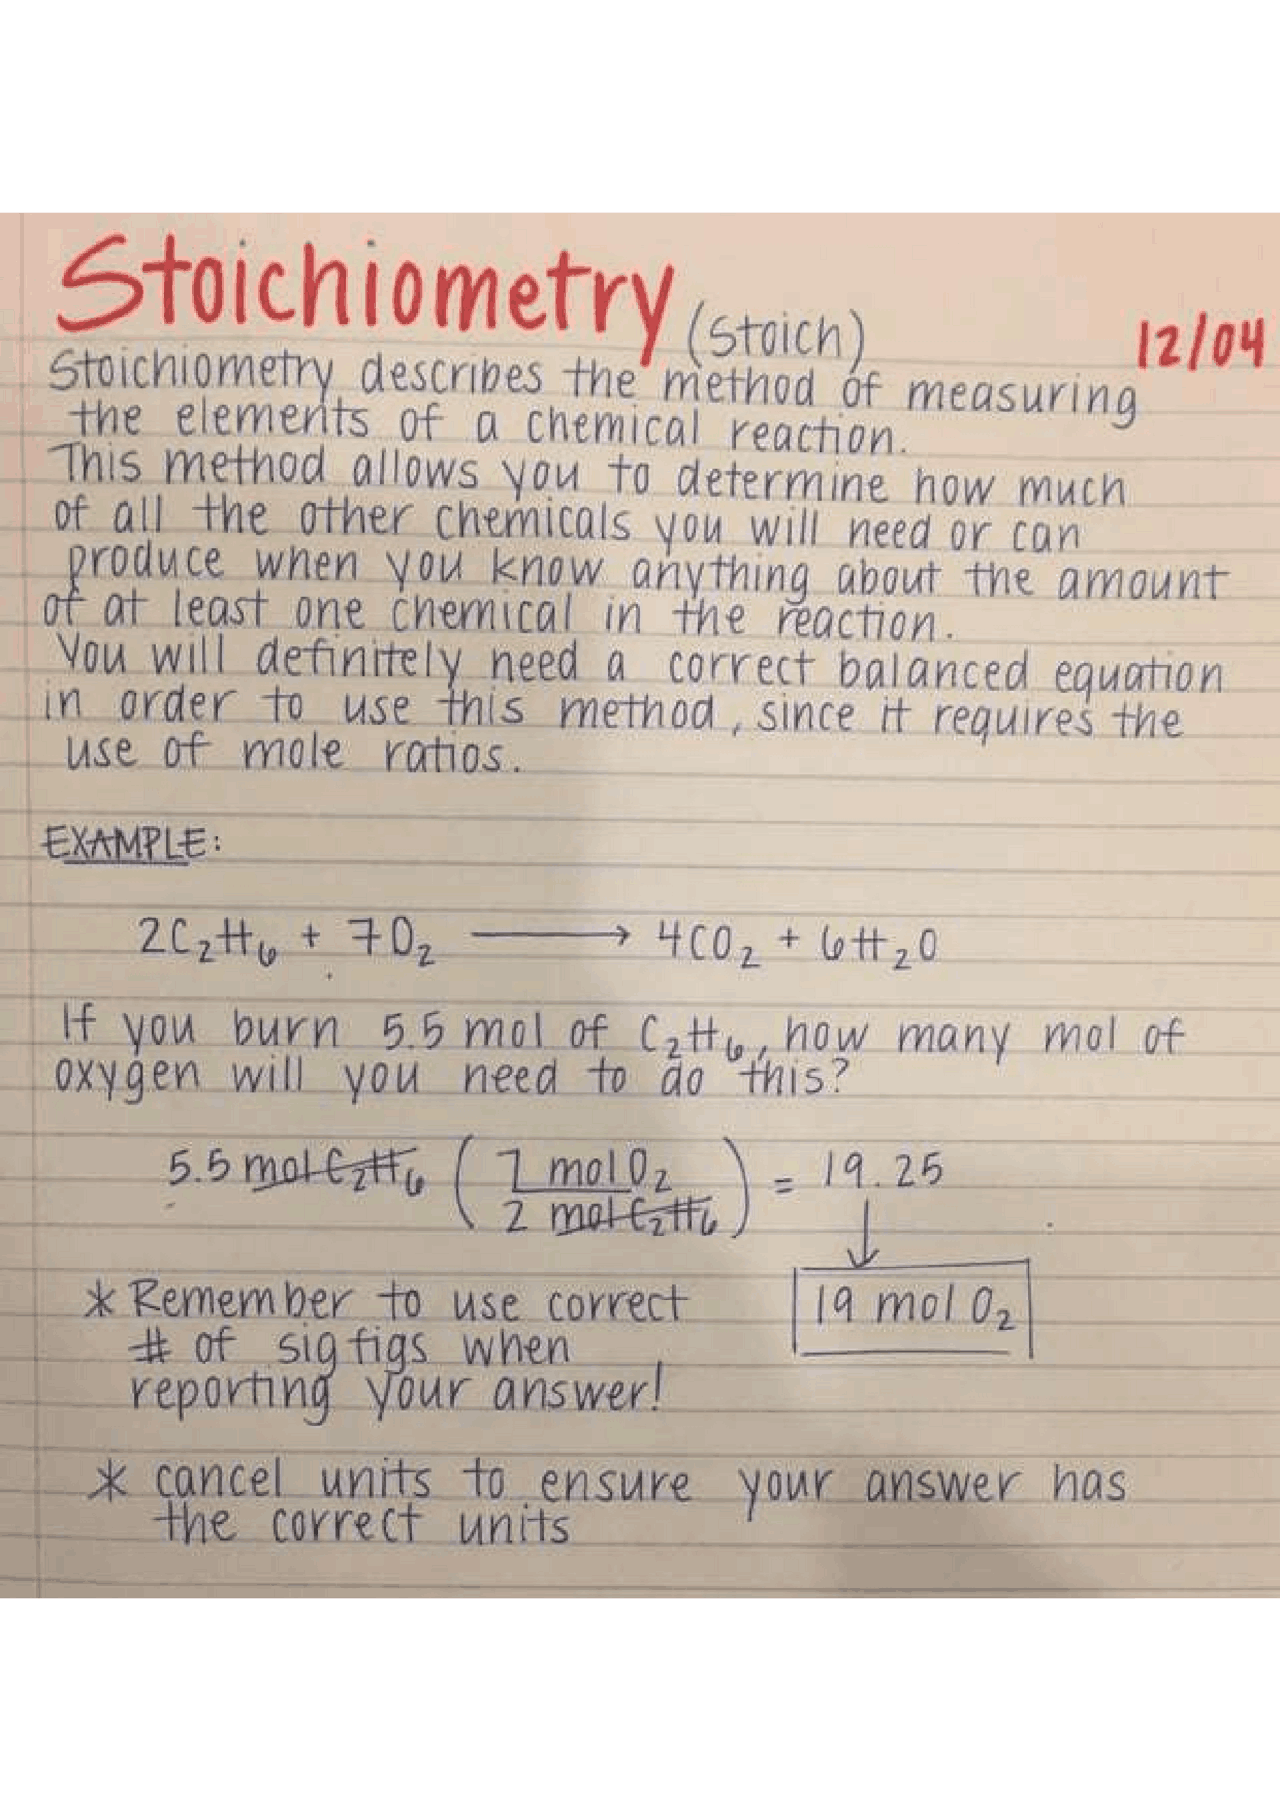 Stoichiometry (Stoich) 12/04
Stoichiometry describes the method of measuring
the elements of a chemical reaction.
This method allows you to determine how much
of all the other chemicals you will need or can
produce when you know anything about the amount
of at least one chemical in the reaction.
You will definitely need a correct balanced equation
in order to use this method, since it requires the
use of mole ratios.
EXAMPLE:
2C₂H₆ + 7O₂ ⟶ 4CO₂ + 6H₂O
If you burn 5.5 mol of C₂H₆, how many mol of
oxygen will you need to do this?
5.5 mol C₂H₆ ( 7 mol O₂ / 2 mol C₂H₆ ) = 19.25
↓
19 mol O₂
* Remember to use correct
# of sig figs when
reporting your answer!
* cancel units to ensure your answer has
the correct units